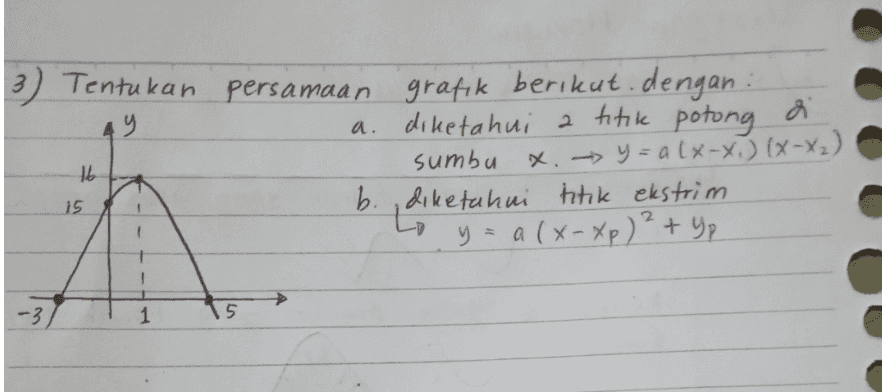 3) Tentukan persamaan grafik berikut. dengan :
a. diketahui 2 titik potong di
sumbu x. → y = a(x-x₁)(x-x₂)
b. diketahui titik ekstrim
↳ y = a(x-xp)² + yp
y
16
15
-3
1
5